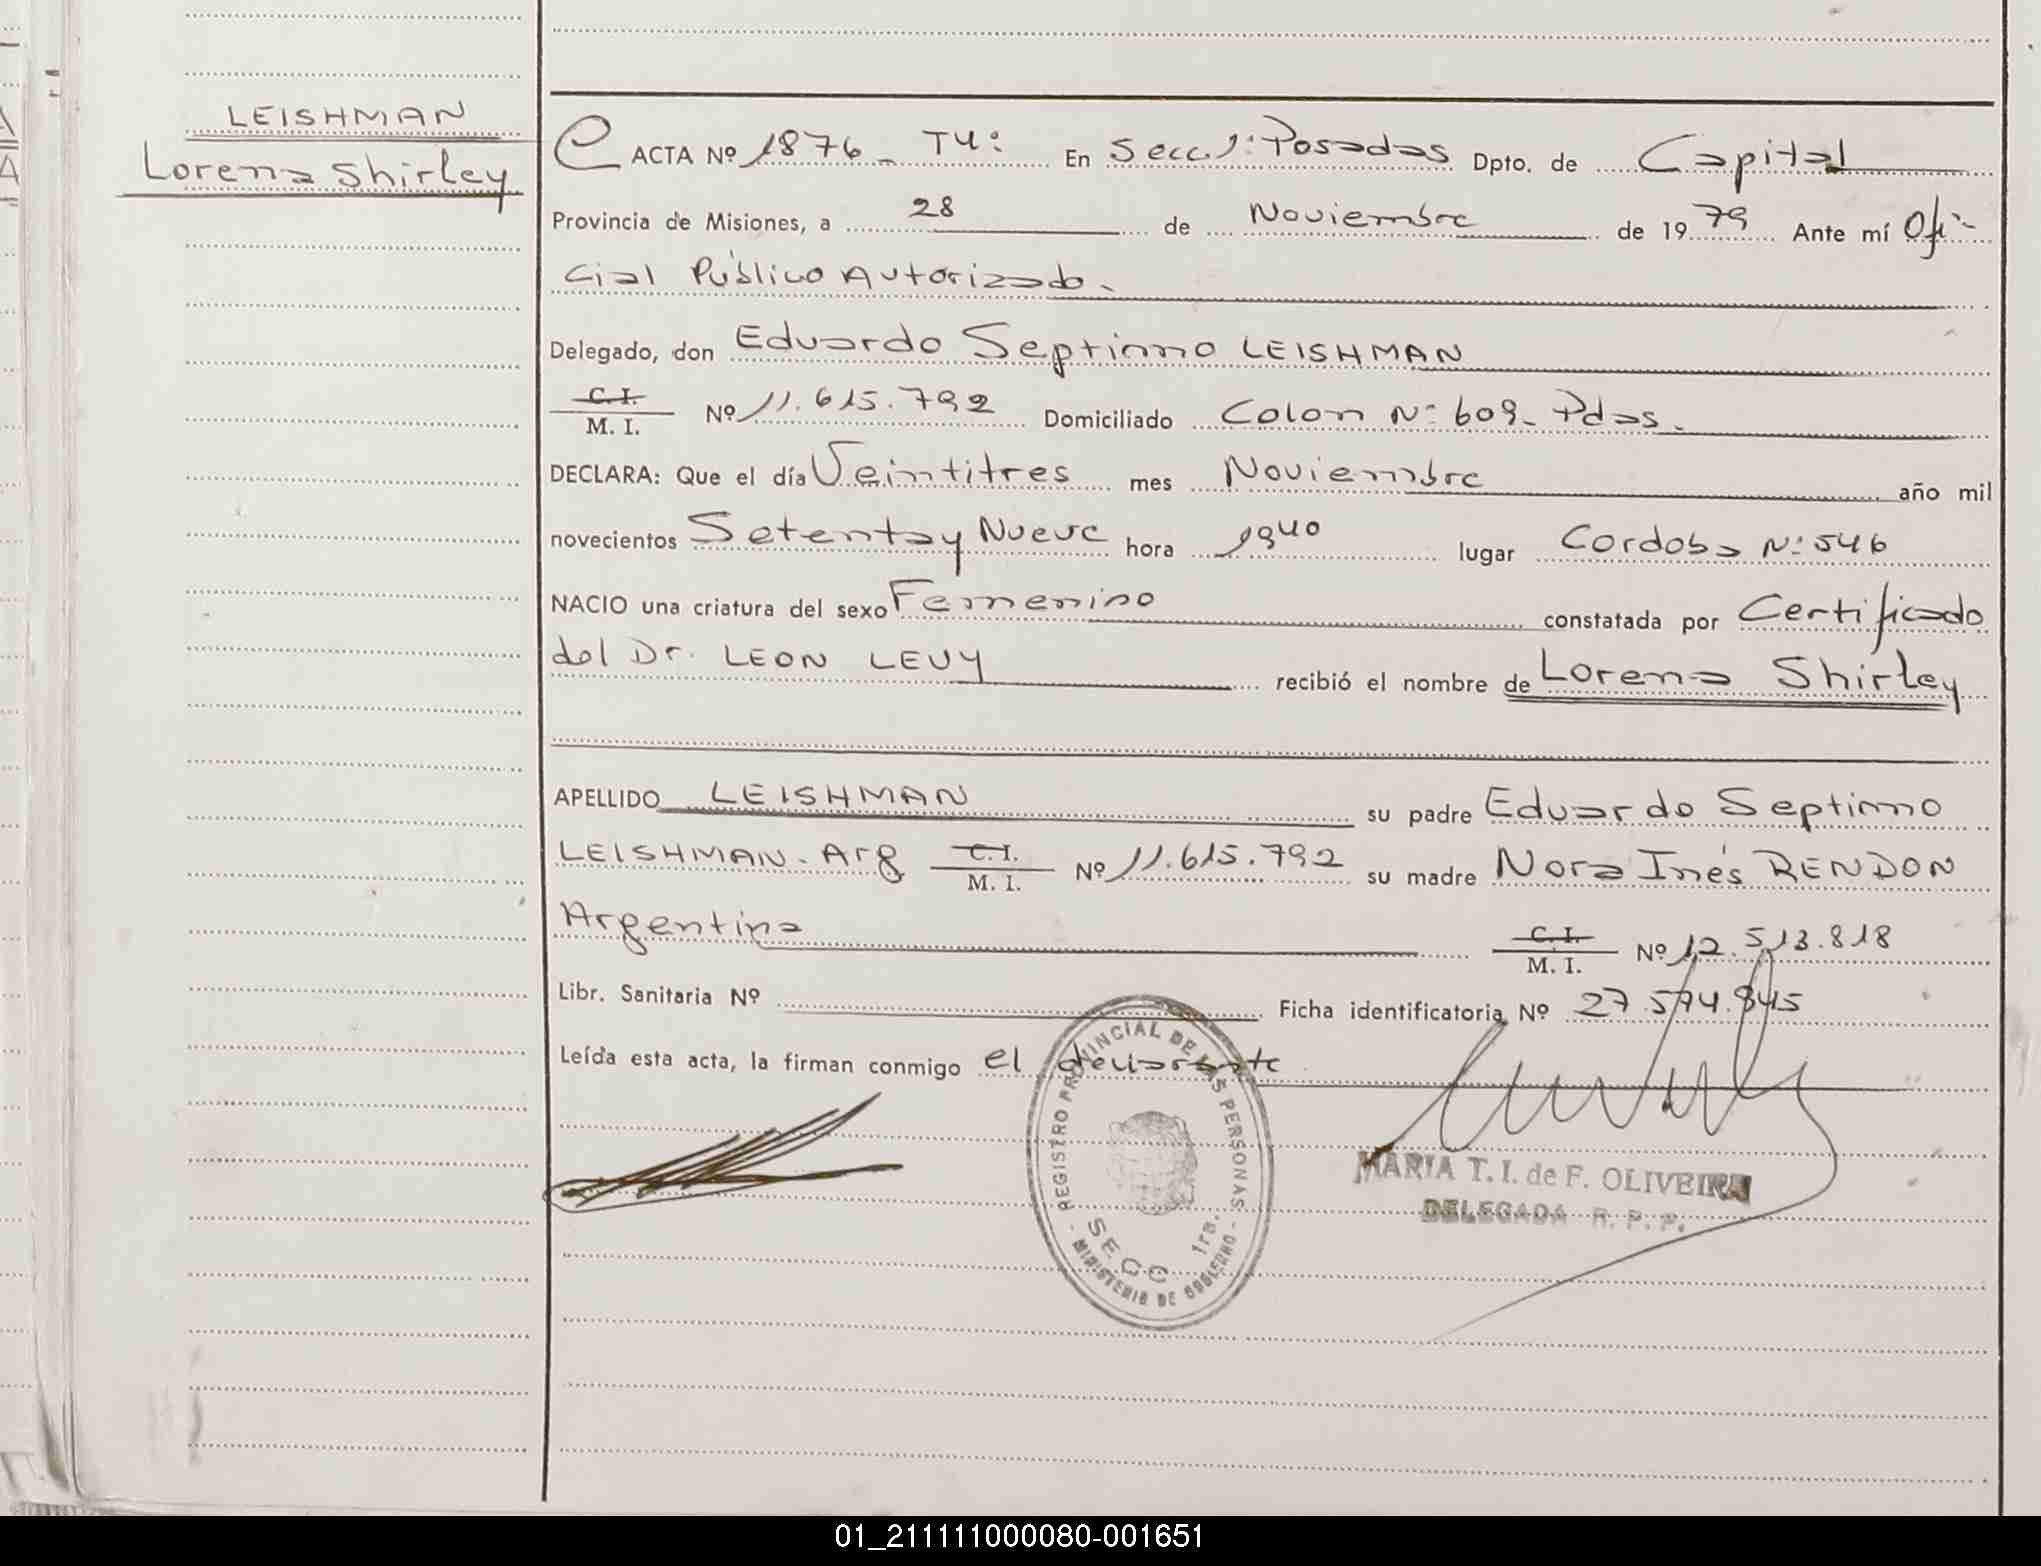 LEISHMAN
Lorena Shirley
ACTA Nº 1876 - T4: En Secc 1: Posadas Dpto. de Capital
Provincia de Misiones, a 28 de Noviembre de 1979 Ante mí Ofi-
cial Público Autorizado.
Delegado, don Eduardo Septimo LEISHMAN
C. I.
M. I. Nº 11.615.792 Domiciliado Colon Nº 609 - Pdas.
DECLARA: Que el día Veintitres mes Noviembre año mil
novecientos Setenta y Nueve hora 1940 lugar Cordoba Nº 546
NACIO una criatura del sexo Femenino constatada por Certificado
del Dr. LEON LEVY recibió el nombre de Lorena Shirley
APELLIDO LEISHMAN su padre Eduardo Septimo
LEISHMAN - Arg C. I. M. I. Nº 11.615.792 su madre Nora Inés RENDON
Argentina C. I. M. I. Nº 12.513.818
Libr. Sanitaria Nº Ficha identificatoria Nº 27.574.845
Leída esta acta, la firman conmigo el declarante
REGISTRO PROVINCIAL DE LAS PERSONAS
SECC 1ra.
- MINISTERIO DE GOBIERNO -
MARIA T. I. de F. OLIVEIRA
DELEGADA R. P. P.
01_211111000080-001651